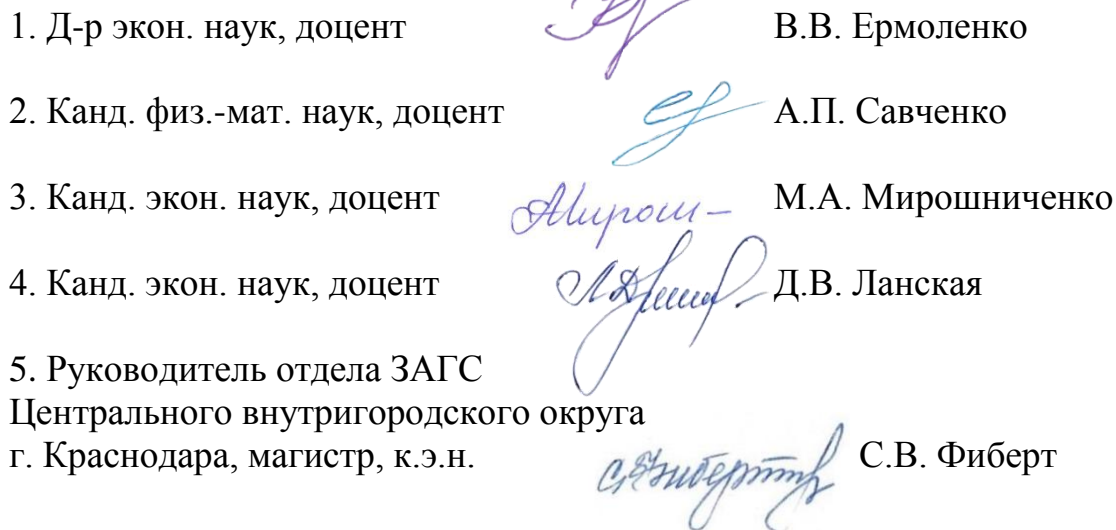 1. Д-р экон. наук, доцент В.В. Ермоленко
2. Канд. физ.-мат. наук, доцент А.П. Савченко
3. Канд. экон. наук, доцент Мирош– М.А. Мирошниченко
4. Канд. экон. наук, доцент Д.В. Ланская
5. Руководитель отдела ЗАГС
Центрального внутригородского округа
г. Краснодара, магистр, к.э.н. С.В. Фиберт